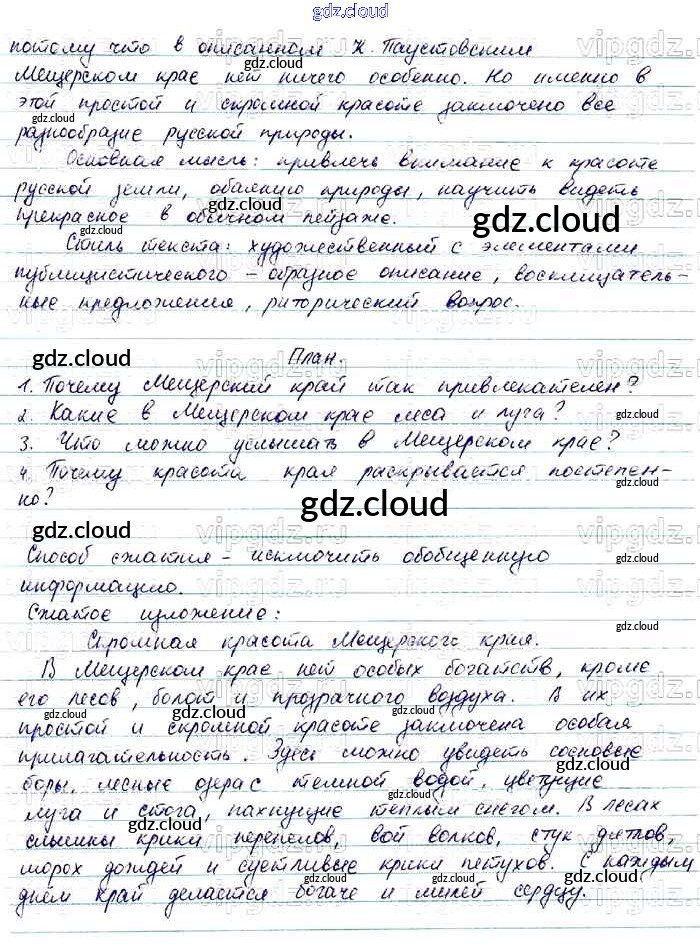 gdz.cloud
потому что в описанном К. Паустовским
Мещерском крае нет ничего особенно. Но именно в
этой простой и скромной красоте заключено все
разнообразие русской природы.
Основная мысль: привлечь внимание к красоте
русской земли, обаянию природы, научить видеть
прекрасное в обычном пейзаже.
Стиль текста: художественный с элементами
публицистического – образное описание, восклицатель-
ные предложения, риторический вопрос.
План.
1. Почему Мещерский край так привлекателен?
2. Какие в Мещерском крае леса и луга?
3. Что можно услышать в Мещерском крае?
4. Почему красота края раскрывается постепен-
но?
gdz.cloud
Способ сжатия – исключить обобщенную
информацию.
Сжатое изложение:
Скромная красота Мещерского края.
В Мещерском крае нет особых богатств, кроме
его лесов, болот и прозрачного воздуха. В их
простой и скромной красоте заключена особая
прилагательность. Здесь можно увидеть сосновые
боры, лесные озера с темной водой, цветущие
луга и стога, пахнущие теплым снегом. В лесах
слышны крики перепелов, вой волков, стук дятлов,
шорох дождей и суетливые крики петухов. С каждым
днём край делается богаче и милей сердцу.